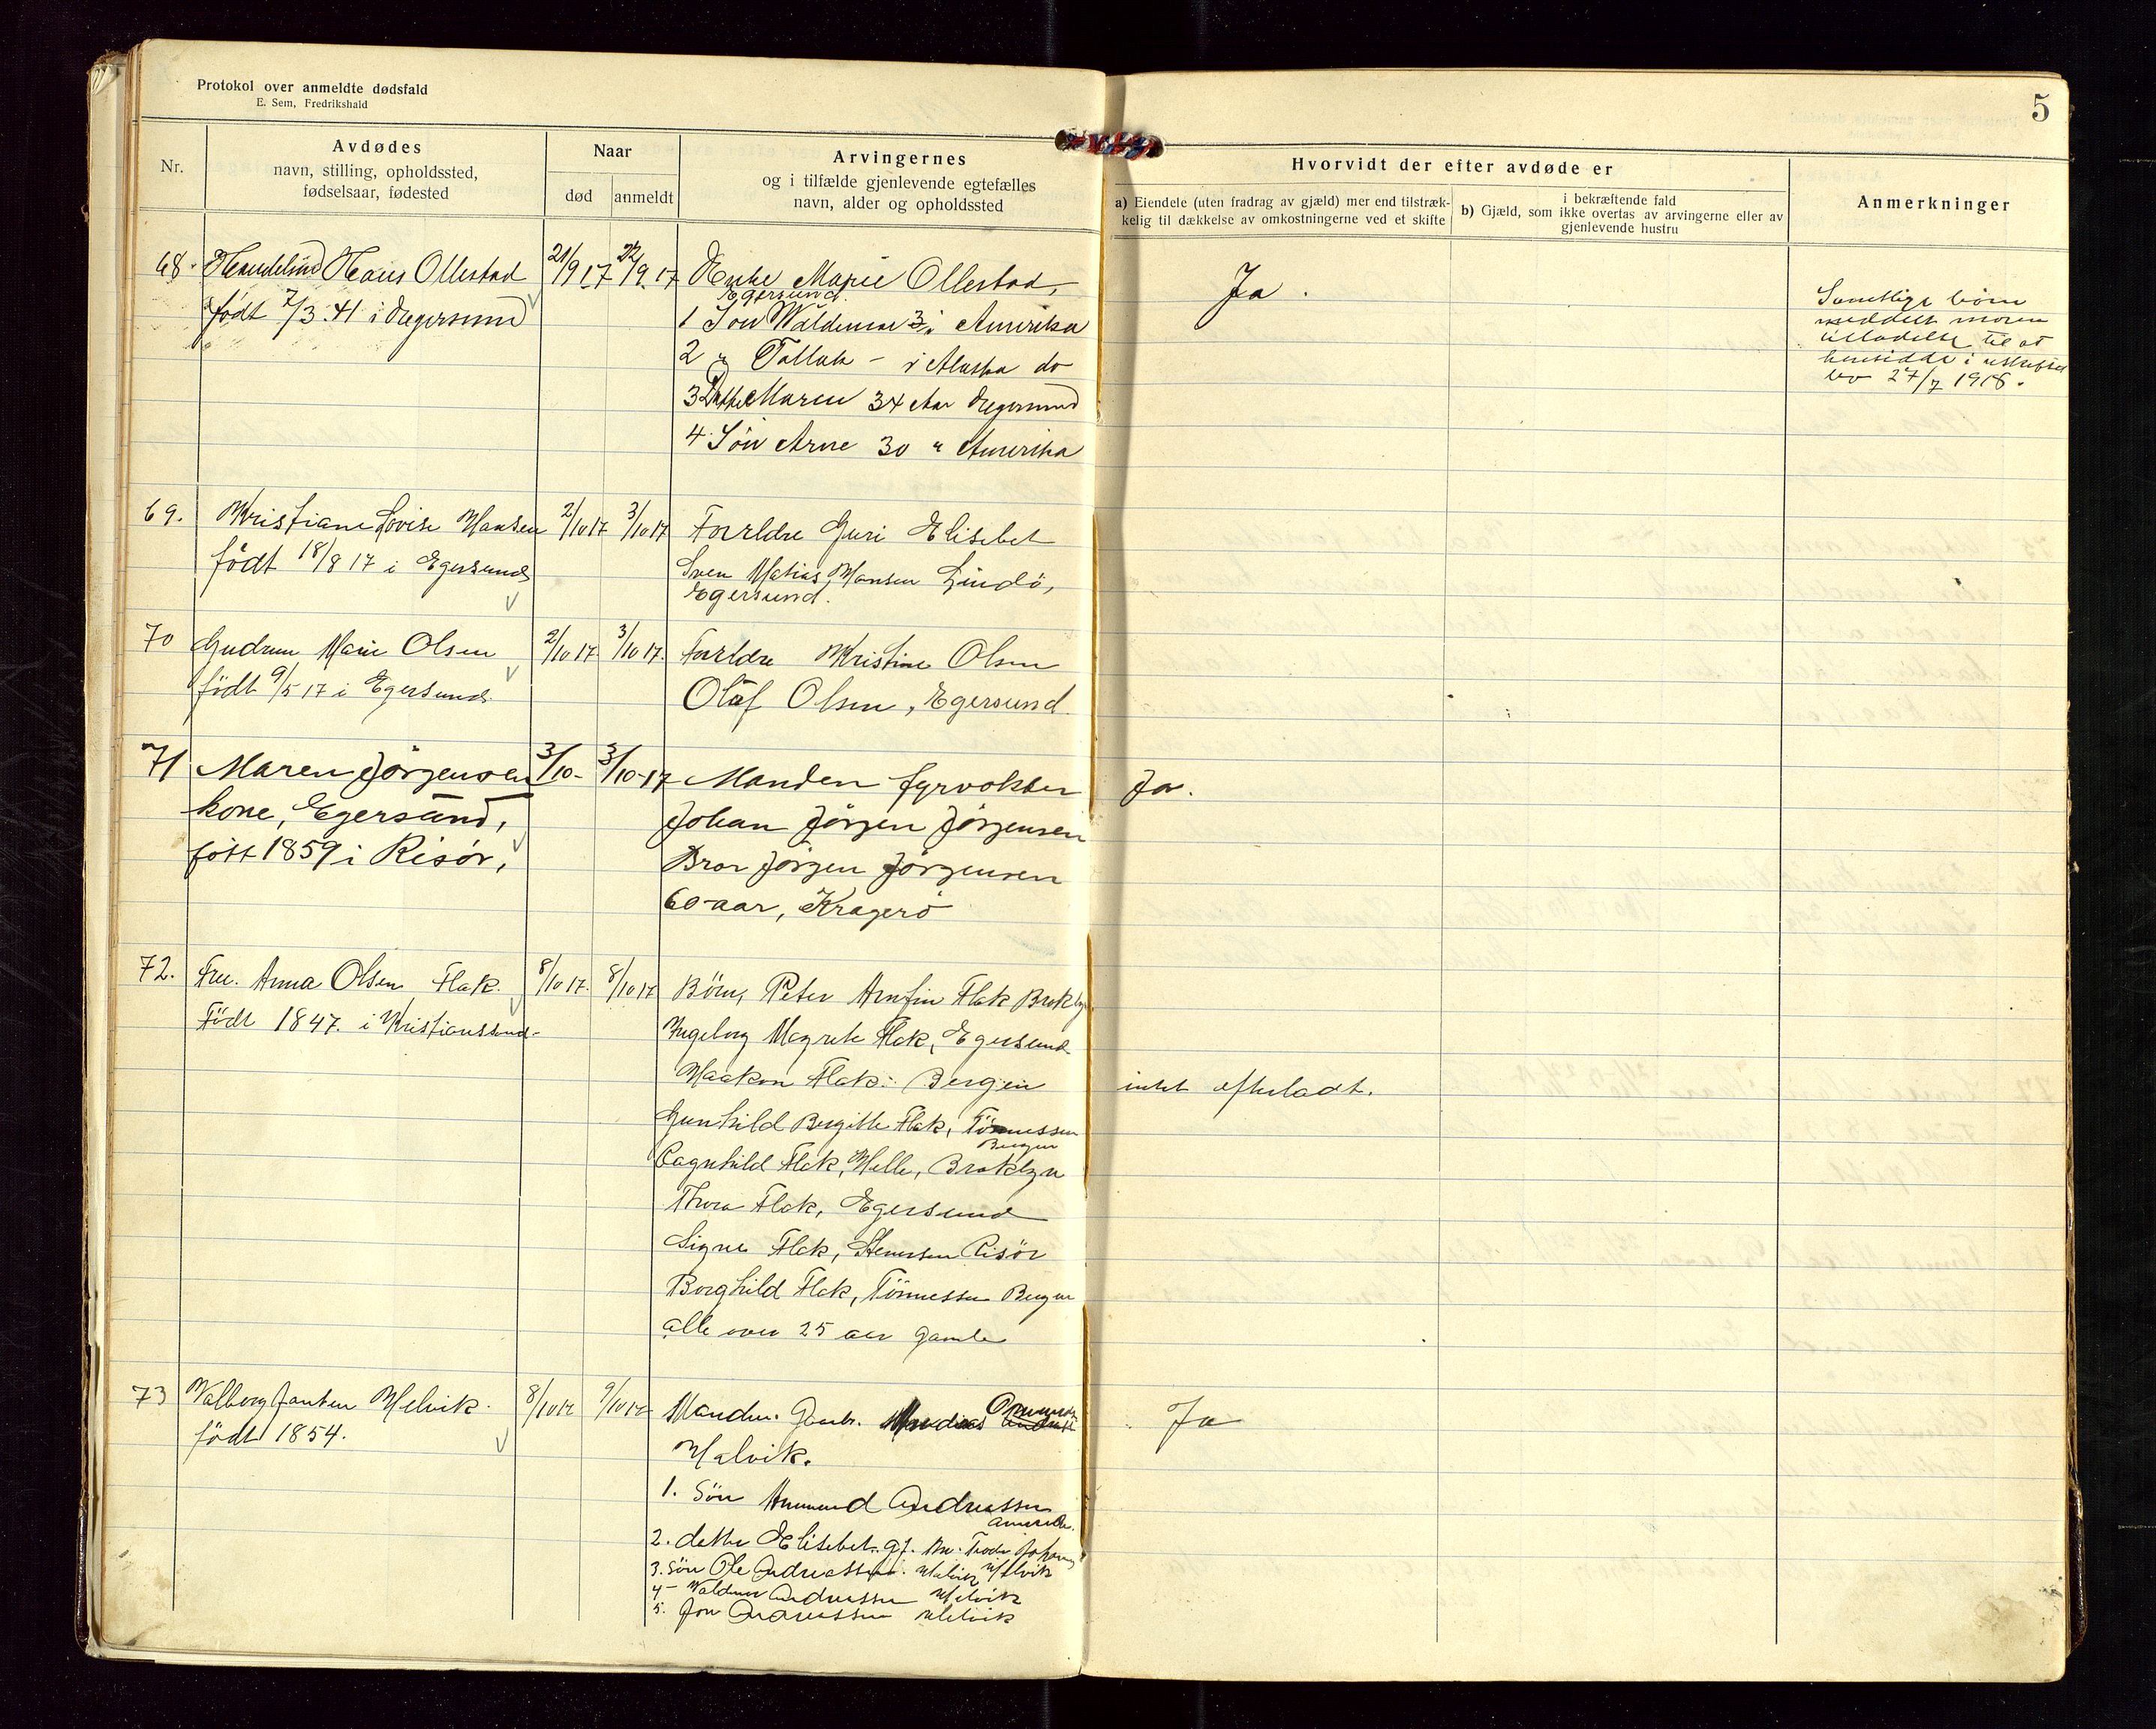 Protokol over anmeldte dødsfald
E. Sem, Fredrikshald
5
Nr.
Avdødes
navn, stilling, opholdssted,
fødselsaar, fødested
Naar
død
anmeldt
Arvingernes
og i tilfælde gjenlevende egtefælles
navn, alder og opholdssted
Hvorvidt der efter avdøde er
a) Eiendele (uten fradrag av gjæld) mer end tilstræk-
kelig til dækkelse av omkostningerne ved et skifte
i bekræftende fald
b) Gjæld, som ikke overtas av arvingerne eller av
gjenlevende hustru
Anmerkninger
68. Hans Ollestad 21/9 17 22/9 17 Enke Marie Ollestad,
Egersund.
født 7/3 41 i Egersund
1 Søn i Amerika
2 " Tallak - i Alaska do
3 Maren 34 Aar Egersund
4. Søn Arne 30 " Amerika
Ja.
Samtlige børn
meddelt moren
tilladelse til at
hensidde i uskiftet
bo 27/7 1918.
69. Kristiane Lovise Hansen 2/10 17 3/10 17 Forældre Guri Elisebet
født 18/8 17 i Egersund
Sven Matias Hansen Lindø,
Egersund.
70 Gudrun Marie Olsen 2/10 17 3/10 17. Forældre Kristine Olsen
født 9/5 17 i Egersund.
Olaf Olsen, Egersund
71 Maren Jörgensen 3/10- 3/10-17 Manden fyrvokter
kone, Egersund,
Johan Jörgen Jörgensen
fött 1859 i Risör,
Bror Jörgen Jörgensen
60 aar, Kragerö
Ja.
72. Fru. Anna Olsen Flak. 8/10 17. 8/10 17 Börn, Peter Arnfin Flak
Födt 1847. i Kristianssund-
Ingeborg Magrete Flak, Egersund
Haakon Flak. Bergen
Gunhild Bergitte Flak, Tönnessen
Bergen
Ragnhild Flak, Helle, Broklyn
Thora Flak, Egersund
Signe Flak, Risör
Borghild Flak, Tönnessen Bergen
alle over 25 aar gamle
intet efterladt.
73 Valborg Melvik. 8/10 17 9/10 17 Manden.
födt 1854.
Melvik.
1. Sön Ammund Andreassen
Amerika.
2. datter Elisebet. gf.
3. Sön Ole Andreassen. Melvik
4 - Andreassen Melvik
5. Jon Andreassen Melvik
Ja